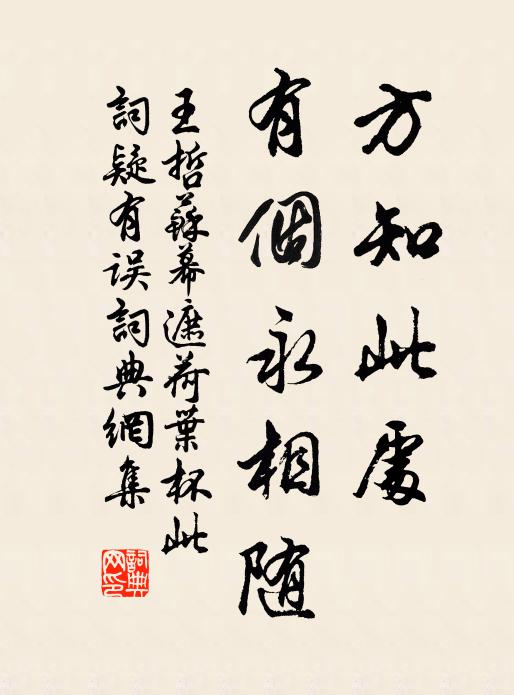 方知此處
有個永相随
王哲蘇幕遮荷葉杯此
詞疑有误詞典網集
詞典網印